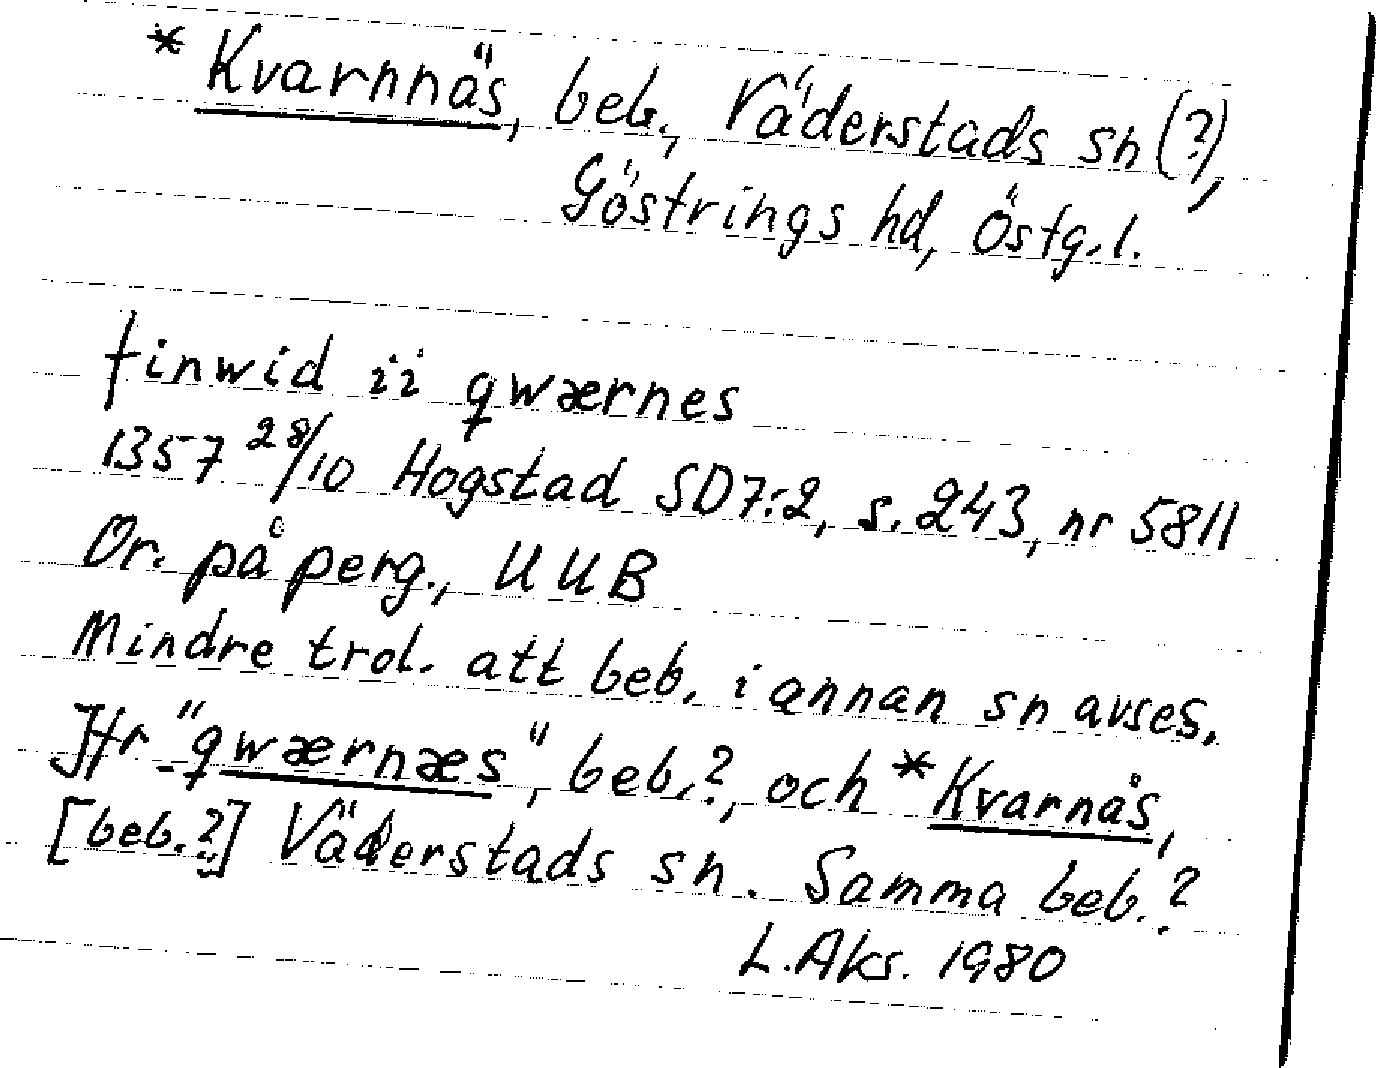 * Kvarnnäs, beb., Väderstads sn (?),
Göstrings hd, Östg.l.
finwid ii qwærnes
1357 28/10 Hogstad SD7:2, s. 243, nr 5811
Or. på perg., UUB
Mindre trol. att beb. i annan sn avses.
Jfr "qwærnæs", beb.?, och *Kvarnås,
[beb.?] Väderstads sn. Samma beb.?
L.Aks. 1980